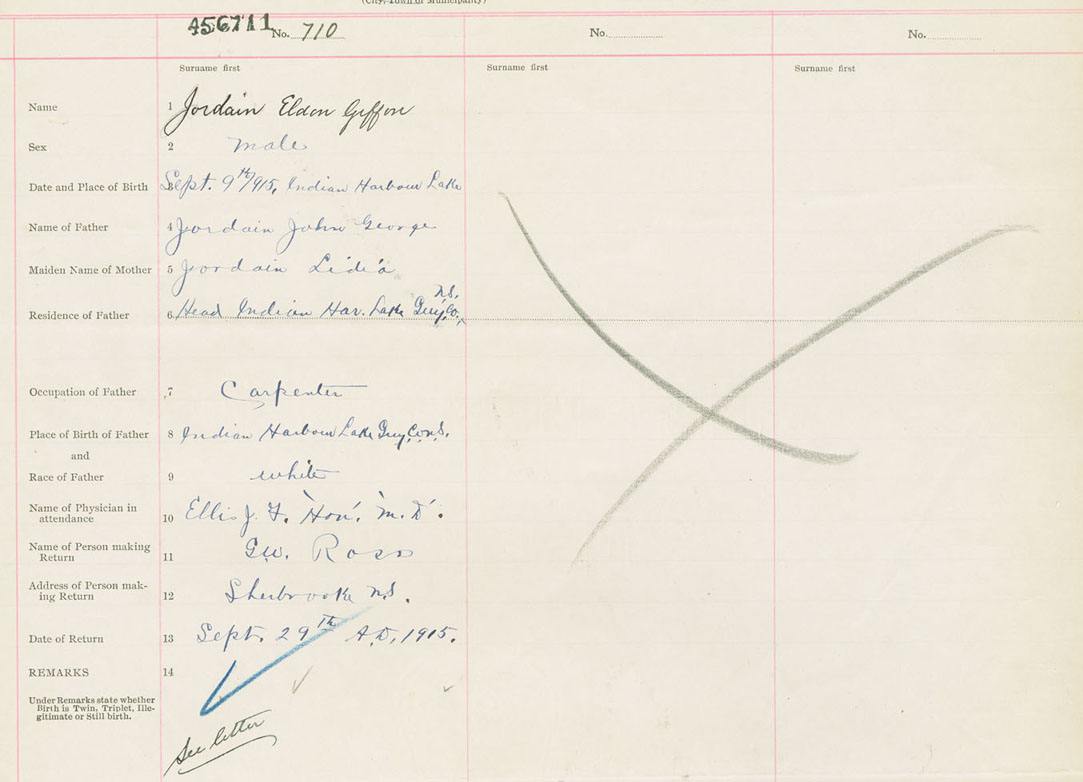 (City, Town or Municipality)
456711 No. 710 No. No.
Surname first Surname first Surname first
Name 1 Jordain Eldon Giffon
Sex 2 male
Date and Place of Birth 3 Sept. 9th/915, Indian Harbour Lake
Name of Father 4 Jordain John George
Maiden Name of Mother 5 Jordain Lidia
N.S.
Residence of Father 6 Head Indian Har. Lake Guy, Co.,
Occupation of Father 7 Carpenter
Place of Birth of Father 8 Indian Harbour Lake Guy, Co. N.S.
and
Race of Father 9 white
Name of Physician in
attendance 10 Ellis J. F. "Hon". "M.D".
Name of Person making
Return 11 G.W. Ross
Address of Person mak-
ing Return 12 Sherbrooke N.S.
Date of Return 13 Sept. 29th A.D, 1915.
REMARKS 14
Under Remarks state whether
Birth is Twin, Triplet, Ille-
gitimate or Still birth.
See letter